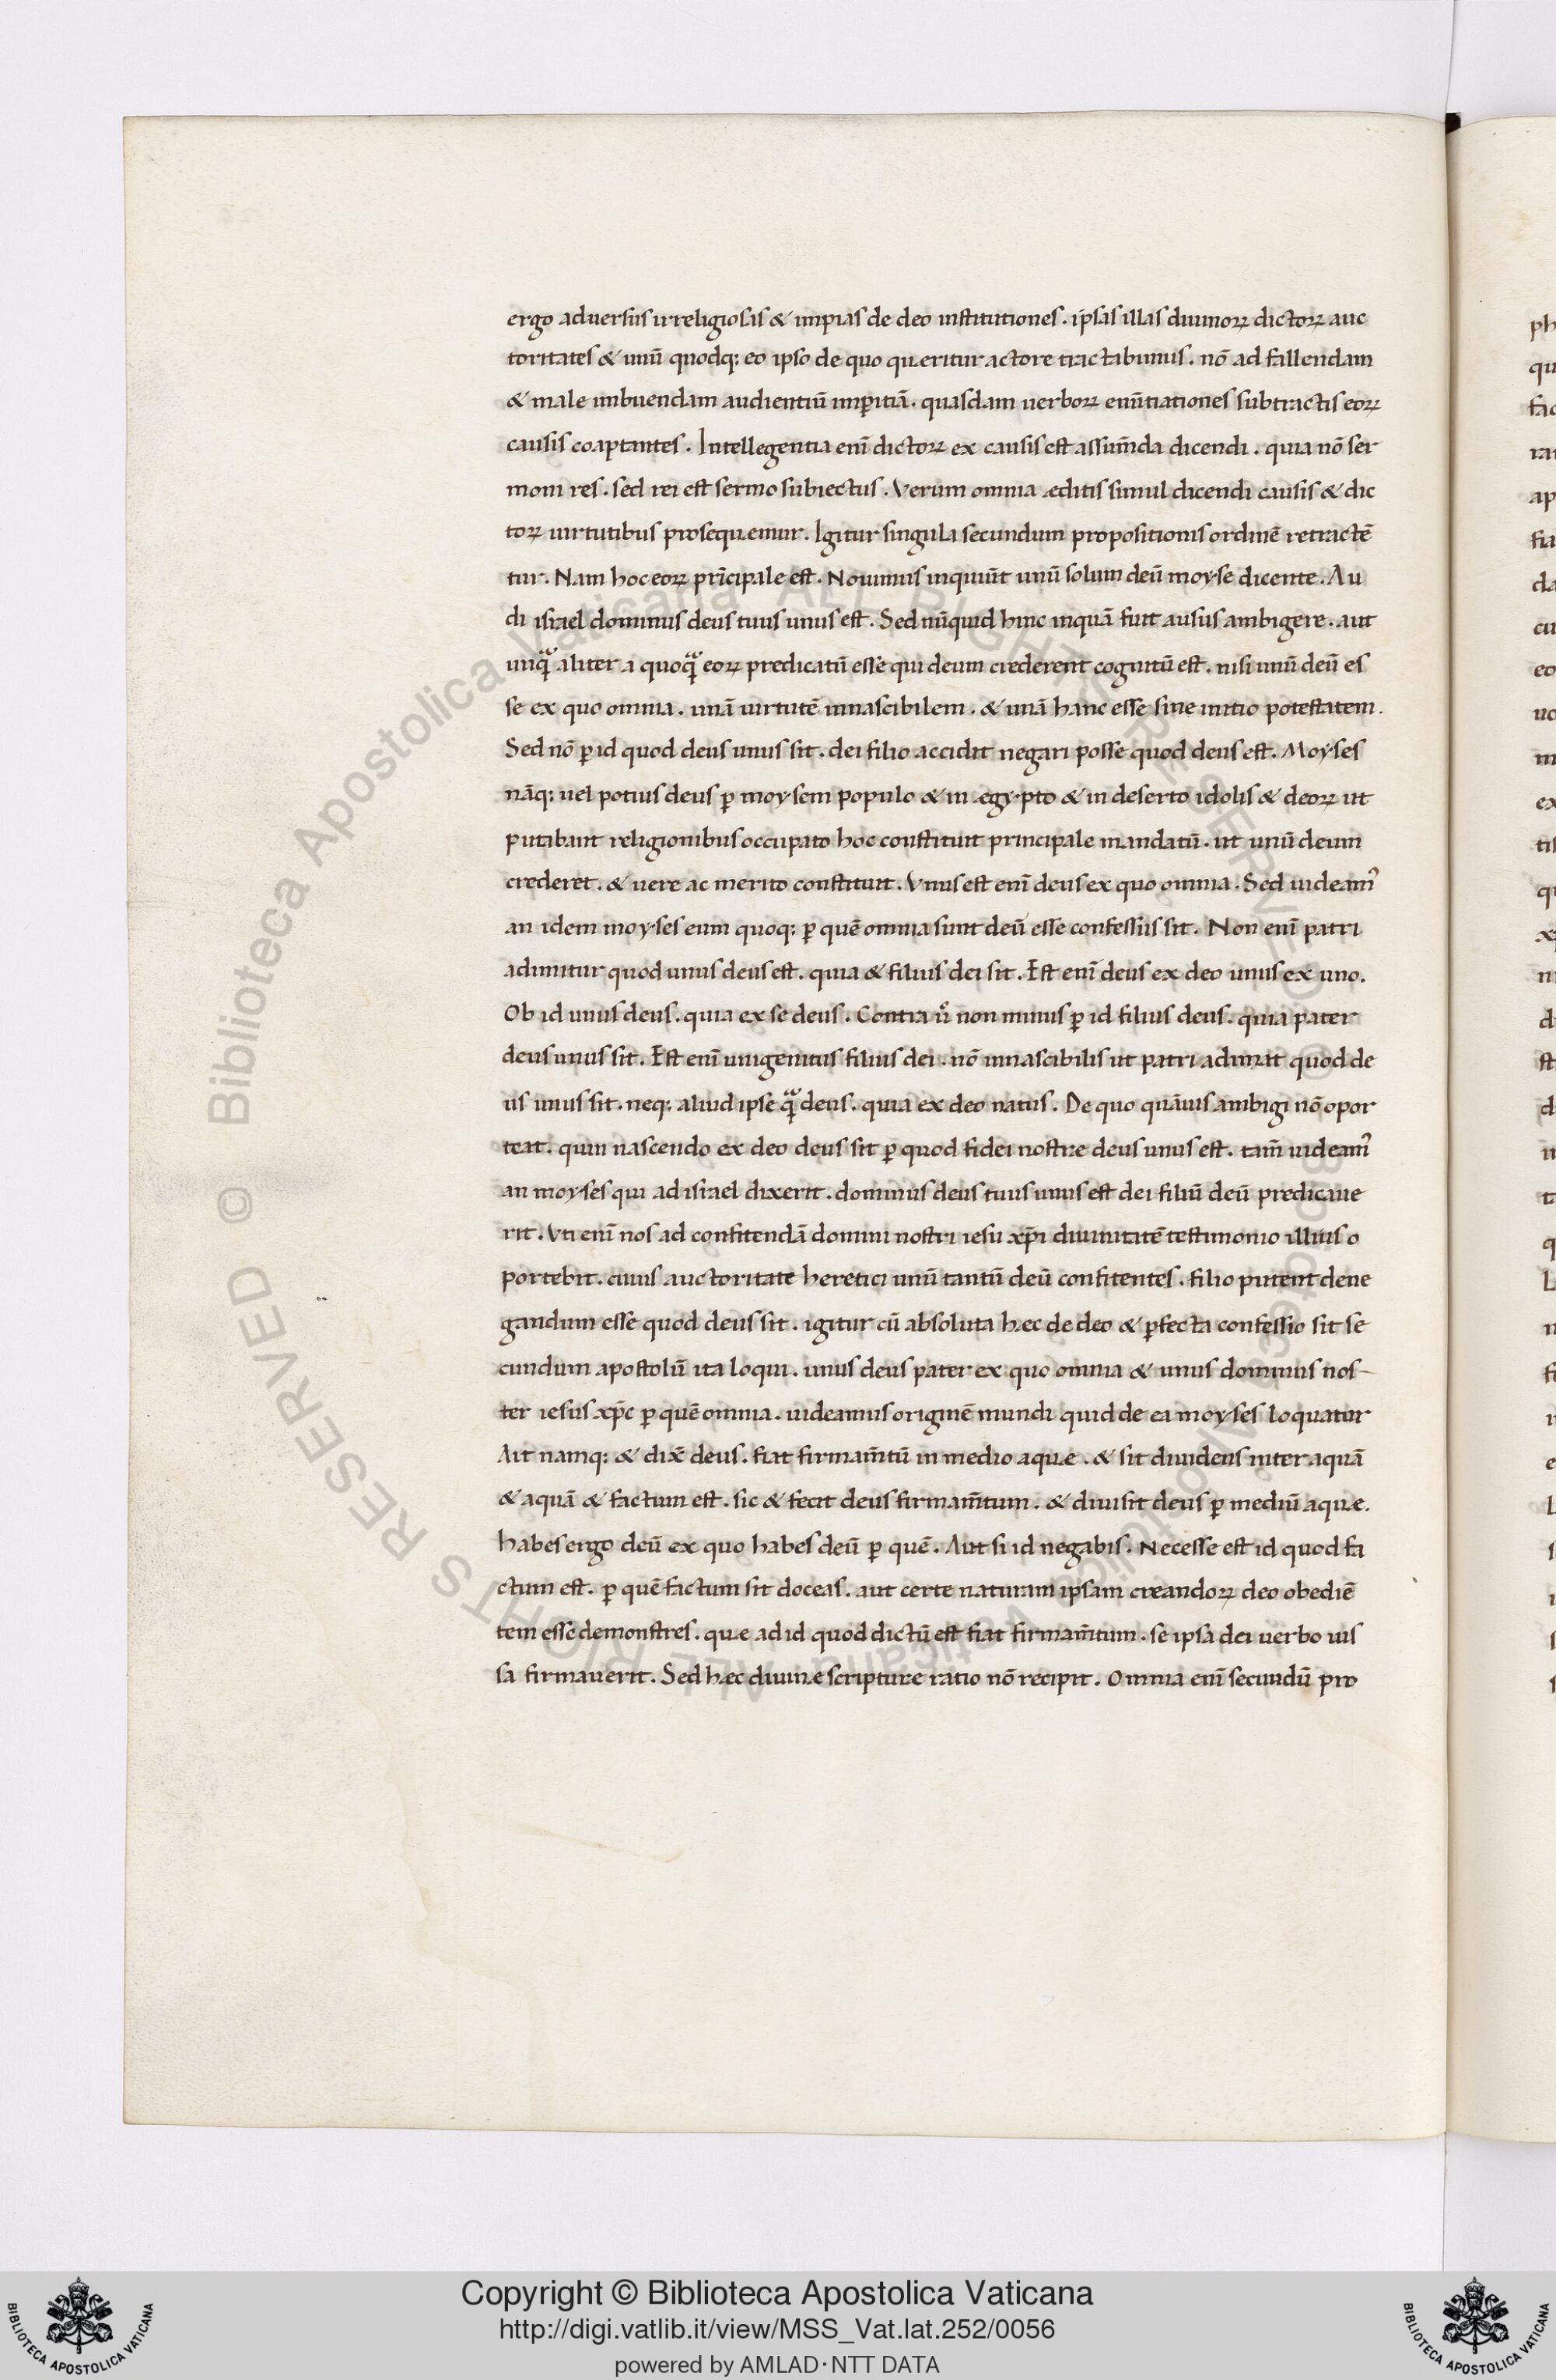 ergo aduersus irreligiosas & impias de deo institutiones . ipsas illas diuinoꝝ dictoꝝ auc
toritates & unū quodq; eo ipso de quo quæritur actore tractabimus . nō ad fallendam
& male imbuendam audientiū imꝑitiā . quasdam uerboꝝ enūtiationes subtractis eoꝝ
causis coaptantes . Intellegentia enī dictoꝝ ex causis est assum̄da dicendi . quia nō ser
moni res . sed rei est sermo subiectus . Verum omnia æditis simul dicendi causis & dic
toꝝ uirtutibus prosequemur . Igitur singula secundum propositionis ordinē retractē
tur . Nam hoc eoꝝ prīcipale est . Nouimus inquiūt unū solum deū moyse dicente . Au
di israel dominus deus tuus unus est . Sed nūquid hinc inquā fuit ausus ambigere . aut
unqᷓ aliter a quoqᷓ eoꝝ predicatū esse qui deum crederent cognitū est . nisi unū deū es
se ex quo omnia . unā uirtutē innascibilem . & unā hanc esse sine initio potestatem .
Sed nō ꝑ id quod deus unus sit . dei filio accidit negari posse quod deus est . Moyses
nāq; uel potius deus ꝑ moysem populo & in ægypto & in deserto idolis & deoꝝ ut
putabant religionibus occupato hoc constituit principale mandatū . ut unū deum
crederet . & uere ac merito constituit . Vnus est enī deus ex quo omnia . Sed uideam᾽
an idem moyses eum quoq; ꝑ quē omnia sunt deū esse confessus sit . Non enī patri
adimitur quod unus deus est . quia & filius dei sit . Est enī deus ex deo unus ex uno .
Ob id unus deus . quia ex se deus . Contra uͦ non minus ꝑ id filius deus . quia pater
deus unus sit . Est enī unigenitus filius dei . nō innascibilis ut patri adimat quod de
us unus sit . neq; aliud ipse qᷓ deus . quia ex deo natus . De quo quāuis ambigi nō opor
teat . quin nascendo ex deo deus sit ꝑ quod fidei nostræ deus unus est . tam̄ uideam᾽
an moyses qui ad israel dixerit . dominus deus tuus unus est dei filiū deū predicaue
rit . Vti enī nos ad confitendā domini nostri iesu xp̄i diuinitatē testimonio illius o
portebit . cuius auctoritate heretici unū tantū deū confitentes . filio putent dene
gandum esse quod deus sit . igitur cū absoluta hæc de deo & ꝑfecta confessio sit se
cundum apostolū ita loqui . unus deus pater ex quo omnia & unus dominus nos-
ter iesus xp̄c ꝑ quē omnia . uideamus originē mundi quid de ea moyses loquatur
Ait namq; & dix̄ deus . fiat firmam̄tū in medio aquæ . & sit diuidens inter aquā
& aquā & factum est . sic & fecit deus firmam̄tum . & diuisit deus ꝑ mediū aquæ .
habes ergo deū ex quo habes deū ꝑ quē . Aut si id negabis . Necesse est id quod fa
ctum est . ꝑ quē factum sit doceas . aut certe naturam ipsam creandoꝝ deo obediē
tem esse demonstres . quæ ad id quod dictū est fiat firmam̄tum . se ipsa dei uerbo uis
sa firmauerit . Sed hæc diuinæ scripturæ ratio nō recipit . Omnia enī secundū pro
© Biblioteca Apostolica Vaticana ALL RIGHTS RESERVED
Copyright © Biblioteca Apostolica Vaticana
http://digi.vatlib.it/view/MSS_Vat.lat.252/0056
powered by AMLAD·NTT DATA
BIBLIOTECA APOSTOLICA VATICANA
BIBLIOTECA APOSTOLICA VATICANA